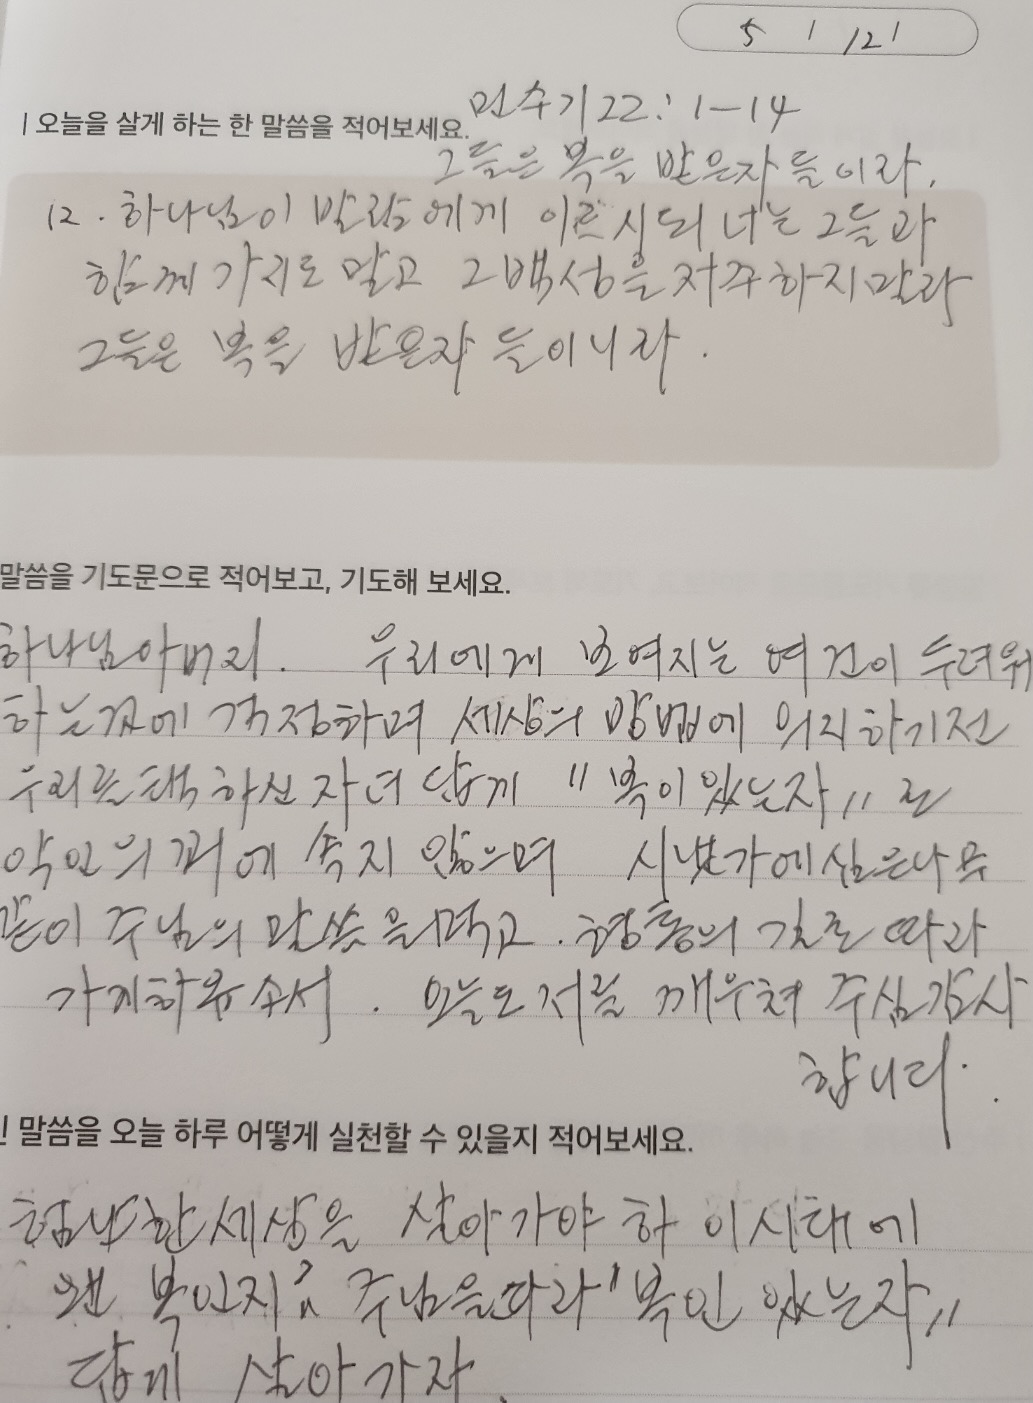 5 / 12 /
민수기22:1-14
| 오늘을 살게 하는 한 말씀을 적어보세요.
그들은 복을 받은자 들이라.
12. 하나님이 발람에게 이르시되 너는 그들과
함께 가지도 말고 그백성을 저주하지말라
그들은 복을 받은자 들이니라.
말씀을 기도문으로 적어보고, 기도해 보세요.
하나님아버지. 우리에게 보여지는 여건이 두려워
하는것에 걱정하며 세상의 방법에 의지하기전
우리를택하신 자녀 답게 "복이있는자" 로
악인의 꾀에 속지 않으며 시냇가에심은나무
같이 주님의 말씀을먹고. 형통의 길로 따라
가게하옵소서. 오늘도 저를 깨우쳐 주심감사
합니다.
말씀을 오늘 하루 어떻게 실천할 수 있을지 적어보세요.
험난한세상을 살아가야 하 이시대에
왠 복인지? 주님을따라 "복인 있는자"
답게 살아가자.